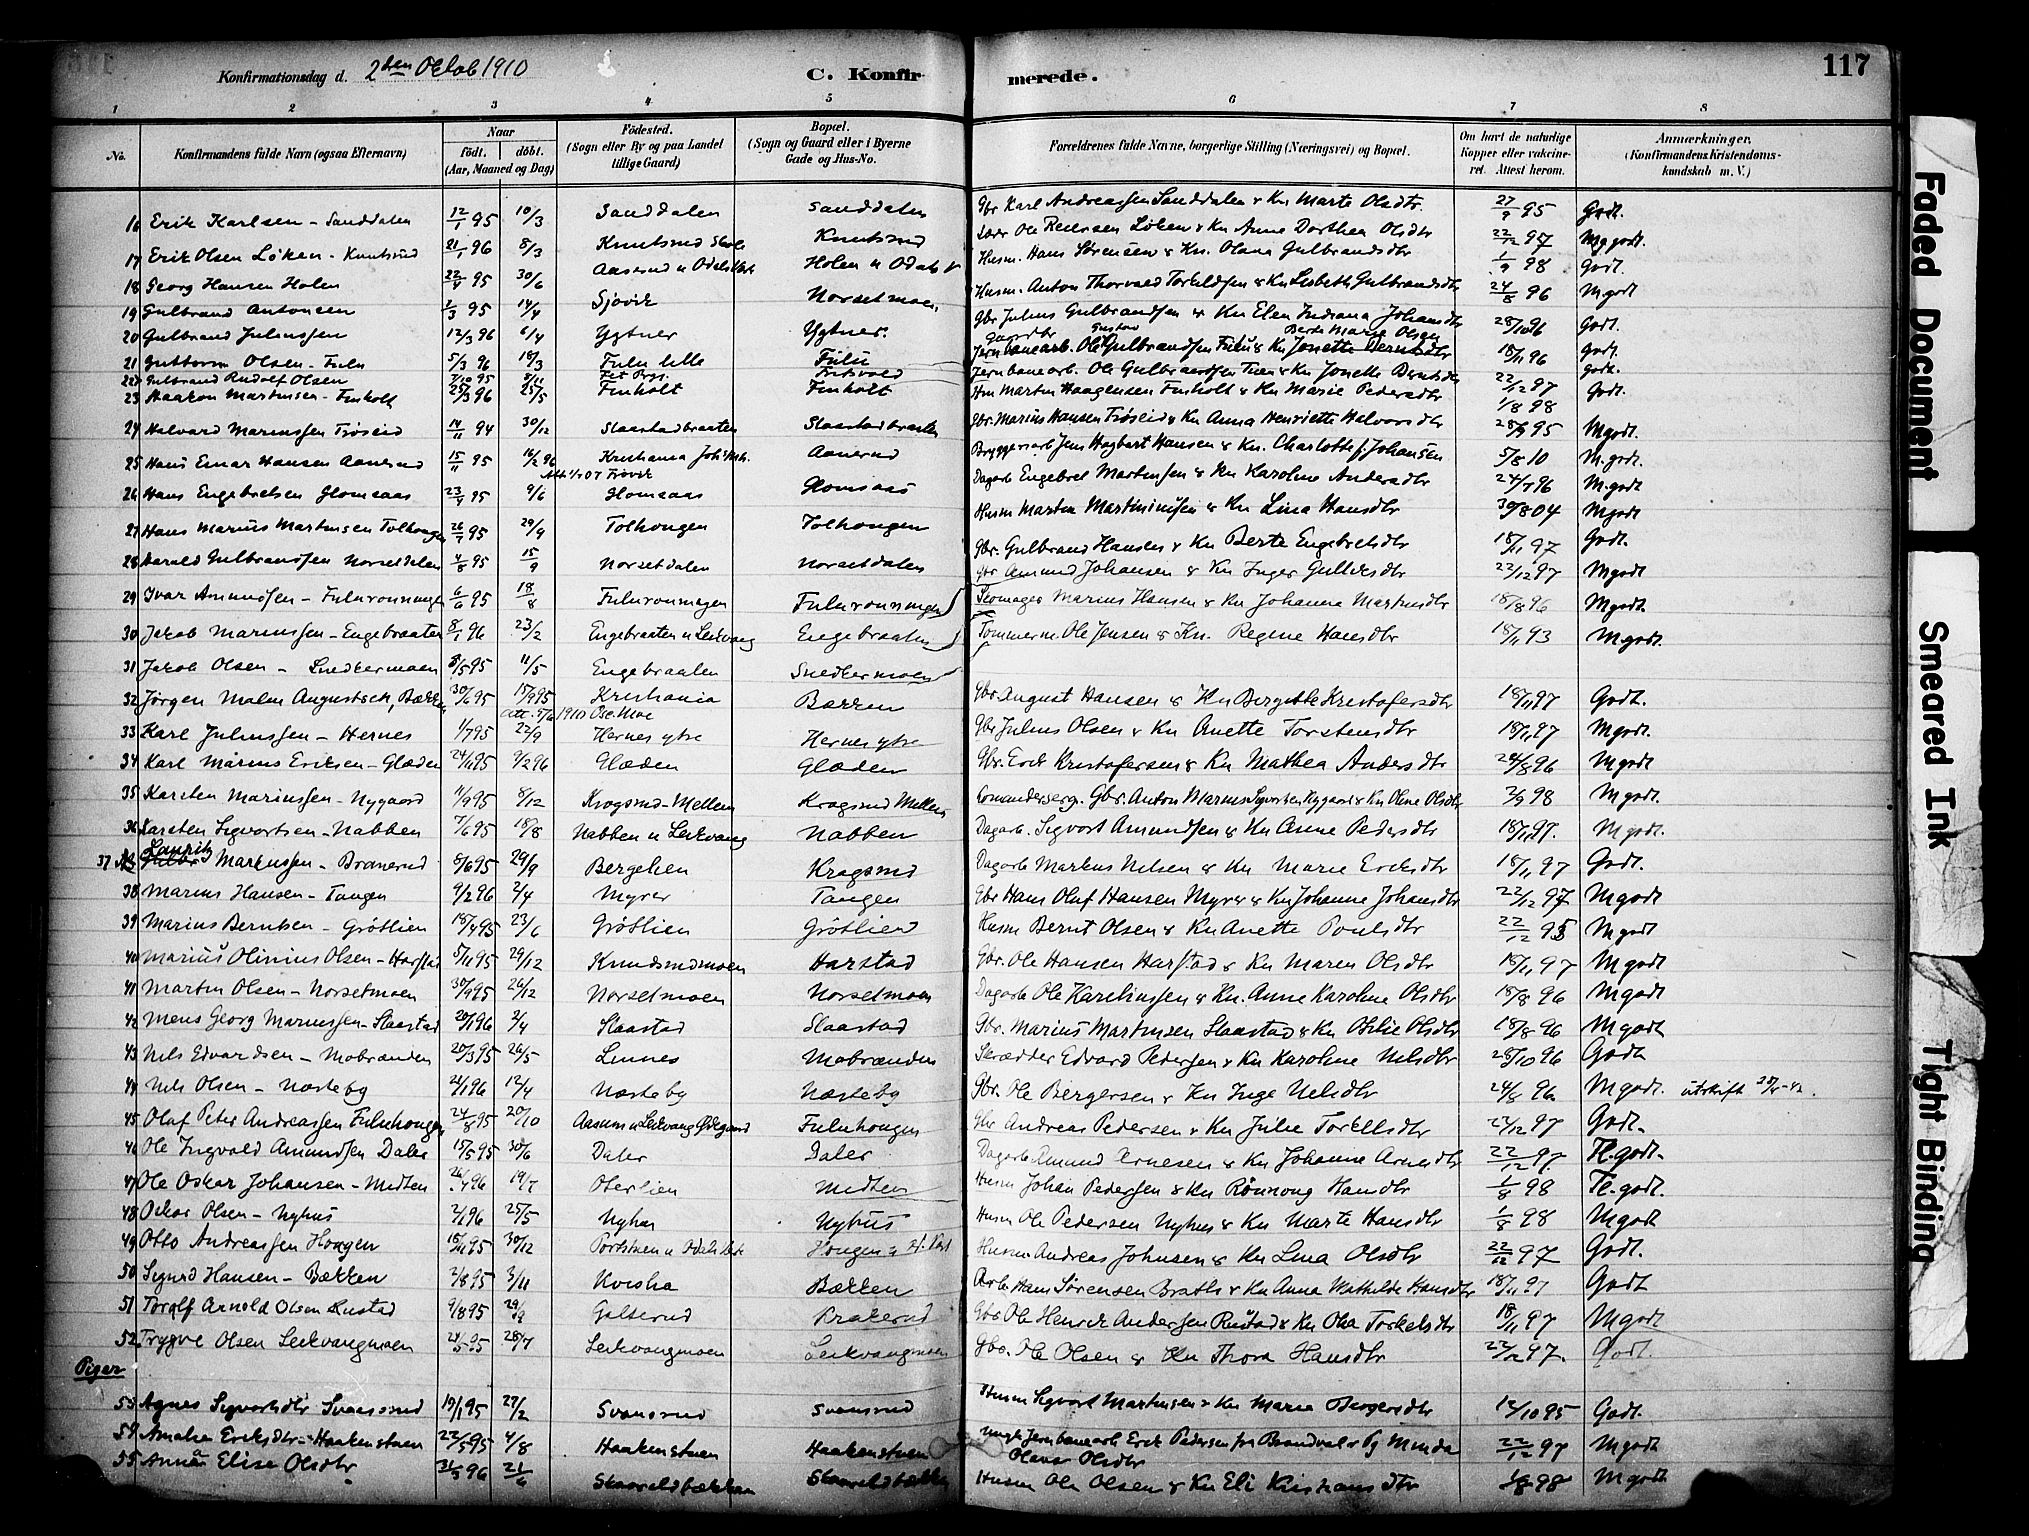 Konfirmationsdag d. 2den Oktob 1910 C. Konfirmerede. 117
1 2 3 4 5 6 7 8
No. Konfirmandens fulde Navn (ogsaa Efternavn) Naar födt. döbt. (Aar, Maaned og Dag) Födested. (Sogn eller By og paa Landet tillige Gaard) Bopæl. (Sogn og Gaard eller i Byerne Gade og Hus-No. Forældrenes fulde Navne, borgerlige Stilling (Næringsvei) og Bopæl. Om havt de naturlige Kopper eller vakcineret. Attest herom. Anmærkninger. (Konfirmandens Kristendomskundskab m. V.)
16 Erik Karlsen - Sanddalen 12/1 95 10/3 Sanddalen Sanddalen Gbr Karl Andreassen Sanddalen & Kn Marte Olsdtr. 27/9 95 Godt.
17 Erik Olsen Löken - Knutsrud 21/1 96 8/3 Knutsrud Knutsrud Ole Pedersen Löken & Kn Anne Dorthea Olsdtr 22/12 97 Mg godt.
18 Georg Hansen Holen 22/4 95 30/6 Aaserud Holen Husm. Hans Sörensen & Kn. Olana Gulbrandsdtr 1/9 98 Godt.
19 Gulbrand Antonsen 1/3 95 14/4 Sjövik Norsetmoen Husm. Anton Thorvald Torkildsen & Kn Lisbeth Gulbrandsdtr 24/8 96 Mgodt
20 Gulbrand Juliussen 12/3 96 6/4 Ygtner Ygtner Gbr Julius Gulbrandsen & Kn Elen Indiana Johansdtr 28/10 96 Godt.
21 Guttorm Olsen - Fulu 5/3 96 18/3 Fulu lille Fulu Jernbanearb. Ole Gustav Gulbrandsen Fulu & Kn Berte Marie Olsen 18/11 96 Godt.
22 Gulbrand Rudolf Olsen 7/10 95 Fet Prgj. Jernbanearb. Ole Gulbrandsen & Kn Jonette Berntsdtr godt.
23 Haakon Martinsen - Finholt 25/3 96 25/5 Finholt Finholt Hm Martin Haagensen Finholt & Kn Marie Pedersdtr 22/12 97 Godt.
1/8 98
24 Halvard Mariussen Tröseid 14/11 94 30/12 Slaastadbraaten Slaastadbraaten Gbr. Marius Hansen Tröseid & Kn Anna Henriette Halvorsdtr 28/9 95 Mgodt.
25 Hans Einar Hansen Aanerud 15/11 95 16/2 96 Kristiania Aanerud Bryggeriarb Jens Hagbart Hansen & Kn. Charlotte f. Johansen 5/8 10 M.godt.
26 Hans Engebretsen Glomsaas 23/4 95 9/6 Glomsaas Glomsaas Dagarb Engebret Martinsen & Kn Karoline Andersdtr 24/7 96 M.godt
27 Hans Marius Martinsen Tolhougen 26/7 95 29/9 Tolhougen Tolhougen Husm Martin Martiniusen & Kn Lina Hansdtr 30/8 04 Mgodt
28 Harald Gulbrandsen Norsetdalen 4/8 95 15/9 Norsetdalen Norsetdalen Gbr. Gulbrand Hansen & Kn Berte Engebretsdtr 18/11 97 Godt.
29 Ivar Amundsen - Fulurönningen 6/6 95 18/8 Fulurönningen Fulurönningen Gbr Amund Johansen & Kn Inger Gulliksdtr 22/12 97 Mgodt
30 Jakob Mariussen - Engebraaten 8/1 96 23/2 Engebraaten u Leikvang Engebraaten Skomager Marius Hansen & Kn Johanna Martinsdtr 18/8 96 Mgodt
31 Jakob Olsen - Snedkermoen 8/5 95 11/5 Engebraaten Snedkermoen Tömmerm. Ole Jensen & Kn. Regine Hansdtr 18/11 93 Mgodt.
32 Jörgen Malm Augustsen, Bækken 30/6 95 15/9 95 Kristiania Bækken Gbr August Hansen & Kn Bergitte Kristofersdtr 18/11 97 Godt.
33 Karl Juliussen - Hernes 1/7 95 22/9 Hernes ytre Hernes ytre Gbr Julius Olsen & Kn Anette Torstensdtr 18/11 97 Mgodt.
34 Karl Marius Eriksen - Glæden 24/11 95 9/2 96 Glæden Glæden Gbr. Erik Kristofersen & Kn Mathea Andersdtr 24/8 96 Mgodt
35 Karsten Mariussen - Nygaard 11/9 95 8/12 Krogsrud - Mellem Krogsrud Mellem Gbr. Anton Marius Nygaard & Kn Oline Olsdtr 3/9 98 Mgodt.
36 Karsten Sigvartsen - Nabben 7/6 95 18/8 Nabben u Leikvang Nabben Dagarb. Sigvart Amundsen & Kn Anne Pedersdtr 18/11 97. Mgodt.
37 Lauritz Markussen - Branerud 5/6 95 29/9 Bergelien Kragsrud Dagarb Markus Nilsen & Kn Marie Eriksdtr 18/11 97 Godt.
38 Marius Hansen - Tangen 9/2 96 2/4 Myrer Tangen Gbr Hans Olaf Hansen Myrer & Kn Johanne Johansdtr 22/12 97 Mgodt
39 Marius Berntsen - Grötlien 18/4 95 23/6 Grötlien Grötlien Husm Bernt Olsen & Kn Anette Poulsdtr 22/12 95 Mgodt
40 Marius Olinius Olsen - Harstad 5/11 95 29/12 Knudsrudmoen Harstad Gbr. Ole Hansen Harstad & Kn Maren Olsdtr 18/11 97 Mgodt
41 Martin Olsen - Norsetmoen 30/9 95 26/12 Norsetmoen Norsetmoen Dagarb Ole Kareliussen & Kn. Anne Karoline Olsdtr 18/8 96 Mgodt
42 Mens Georg Mariussen - Slaastad 20/1 96 2/4 Slaastad Slaastad Gbr. Marius Martinsen Slaastad & Kn Otilie Olsdtr 18/8 96 Mgodt
43 Nils Edvardsen - Mobrænden 20/3 95 26/5 Linnes Mobrænden Skrædder Edvard Pedersen & Kn Karoline Nilsdtr 28/10 96 Godt
44 Nils Olsen - Næsteby 21/1 96 12/4 Næsteby Næsteby Gbr. Ole Bergersen & Kn Inge Nilsdtr 24/8 96 Mgodt. utskrift
45 Olaf Peter Andreassen Fuluhougen 24/8 95 20/10 Aasum u Leikvang Ödegaard Fuluhougen Gbr Andreas Pedersen & Kn Julie Torkelsdtr 22/12 97 Godt.
46 Ole Ingvald Amundsen Daler 15/5 95 30/6 Daler Daler Dagarb Amund Arnesen & Kn Johanne Arnesdtr 22/12 97 Tl.godt.
47 Ole Oskar Johansen - Midten 26/4 96 19/7 Oterlien Midten Husm Johan Pedersen & Kn Rönnaug Hansdtr 1/8 98 Tl.godt.
48 Oskar Olsen - Nyhus 2/1 96 25/5 Nyhus Nyhus Husm Ole Pedersen Nyhus & Kn Marte Hansdtr 1/8 98 Mgodt
49 Otto Andreassen Hougen 18/11 95 30/12 Hougen Husm Andreas Johnsen & Kn Lina Olsdtr 22/12 97 Godt.
50 Sigurd Hansen - Bækken 2/8 95 3/11 Kvisha Bækken Arb. Hans Sörensen Brath & Kn Anna Mathilde Hansdtr 18/11 97 Godt
51 Toralf Arnold Olsen Rustad 9/8 95 29/9 Galterud Prakerud Gbr Ole Henrik Andersen Rustad & Kn Olea Torkelsdtr 18/11 97 Mgodt
52 Trygve Olsen Leikvangmoen 24/5 95 28/7 Leikvangmoen Leikvangmoen Gbr. Ole Olsen & Kn Thora Hansdtr 22/12 97. Godt.
Piger
53 Agnes Sigvartsdtr Svensrud 19/1 95 27/2 Svensrud Svensrud Husm Sigvart Martinsen & Kn Maria Bergersdtr 12/10 95 Godt.
54 Amalie Eriksdtr - Haakenstuen 22/5 95 4/8 Haakenstuen Haakenstuen Ungk Jernbanearb Erik Pedersen fra Brandval & Pg Minda Olava Olsdtr 22/12 97 Mgodt
55 Anna Elise Olsdtr 31/3 96 21/6 Skarvoldbækken Skarvoldbækken Husm Ole Olsen & Kn Eli Kristiansdtr 1/8 98 Mgodt
Faded Document
Smeared Ink
Tight Binding